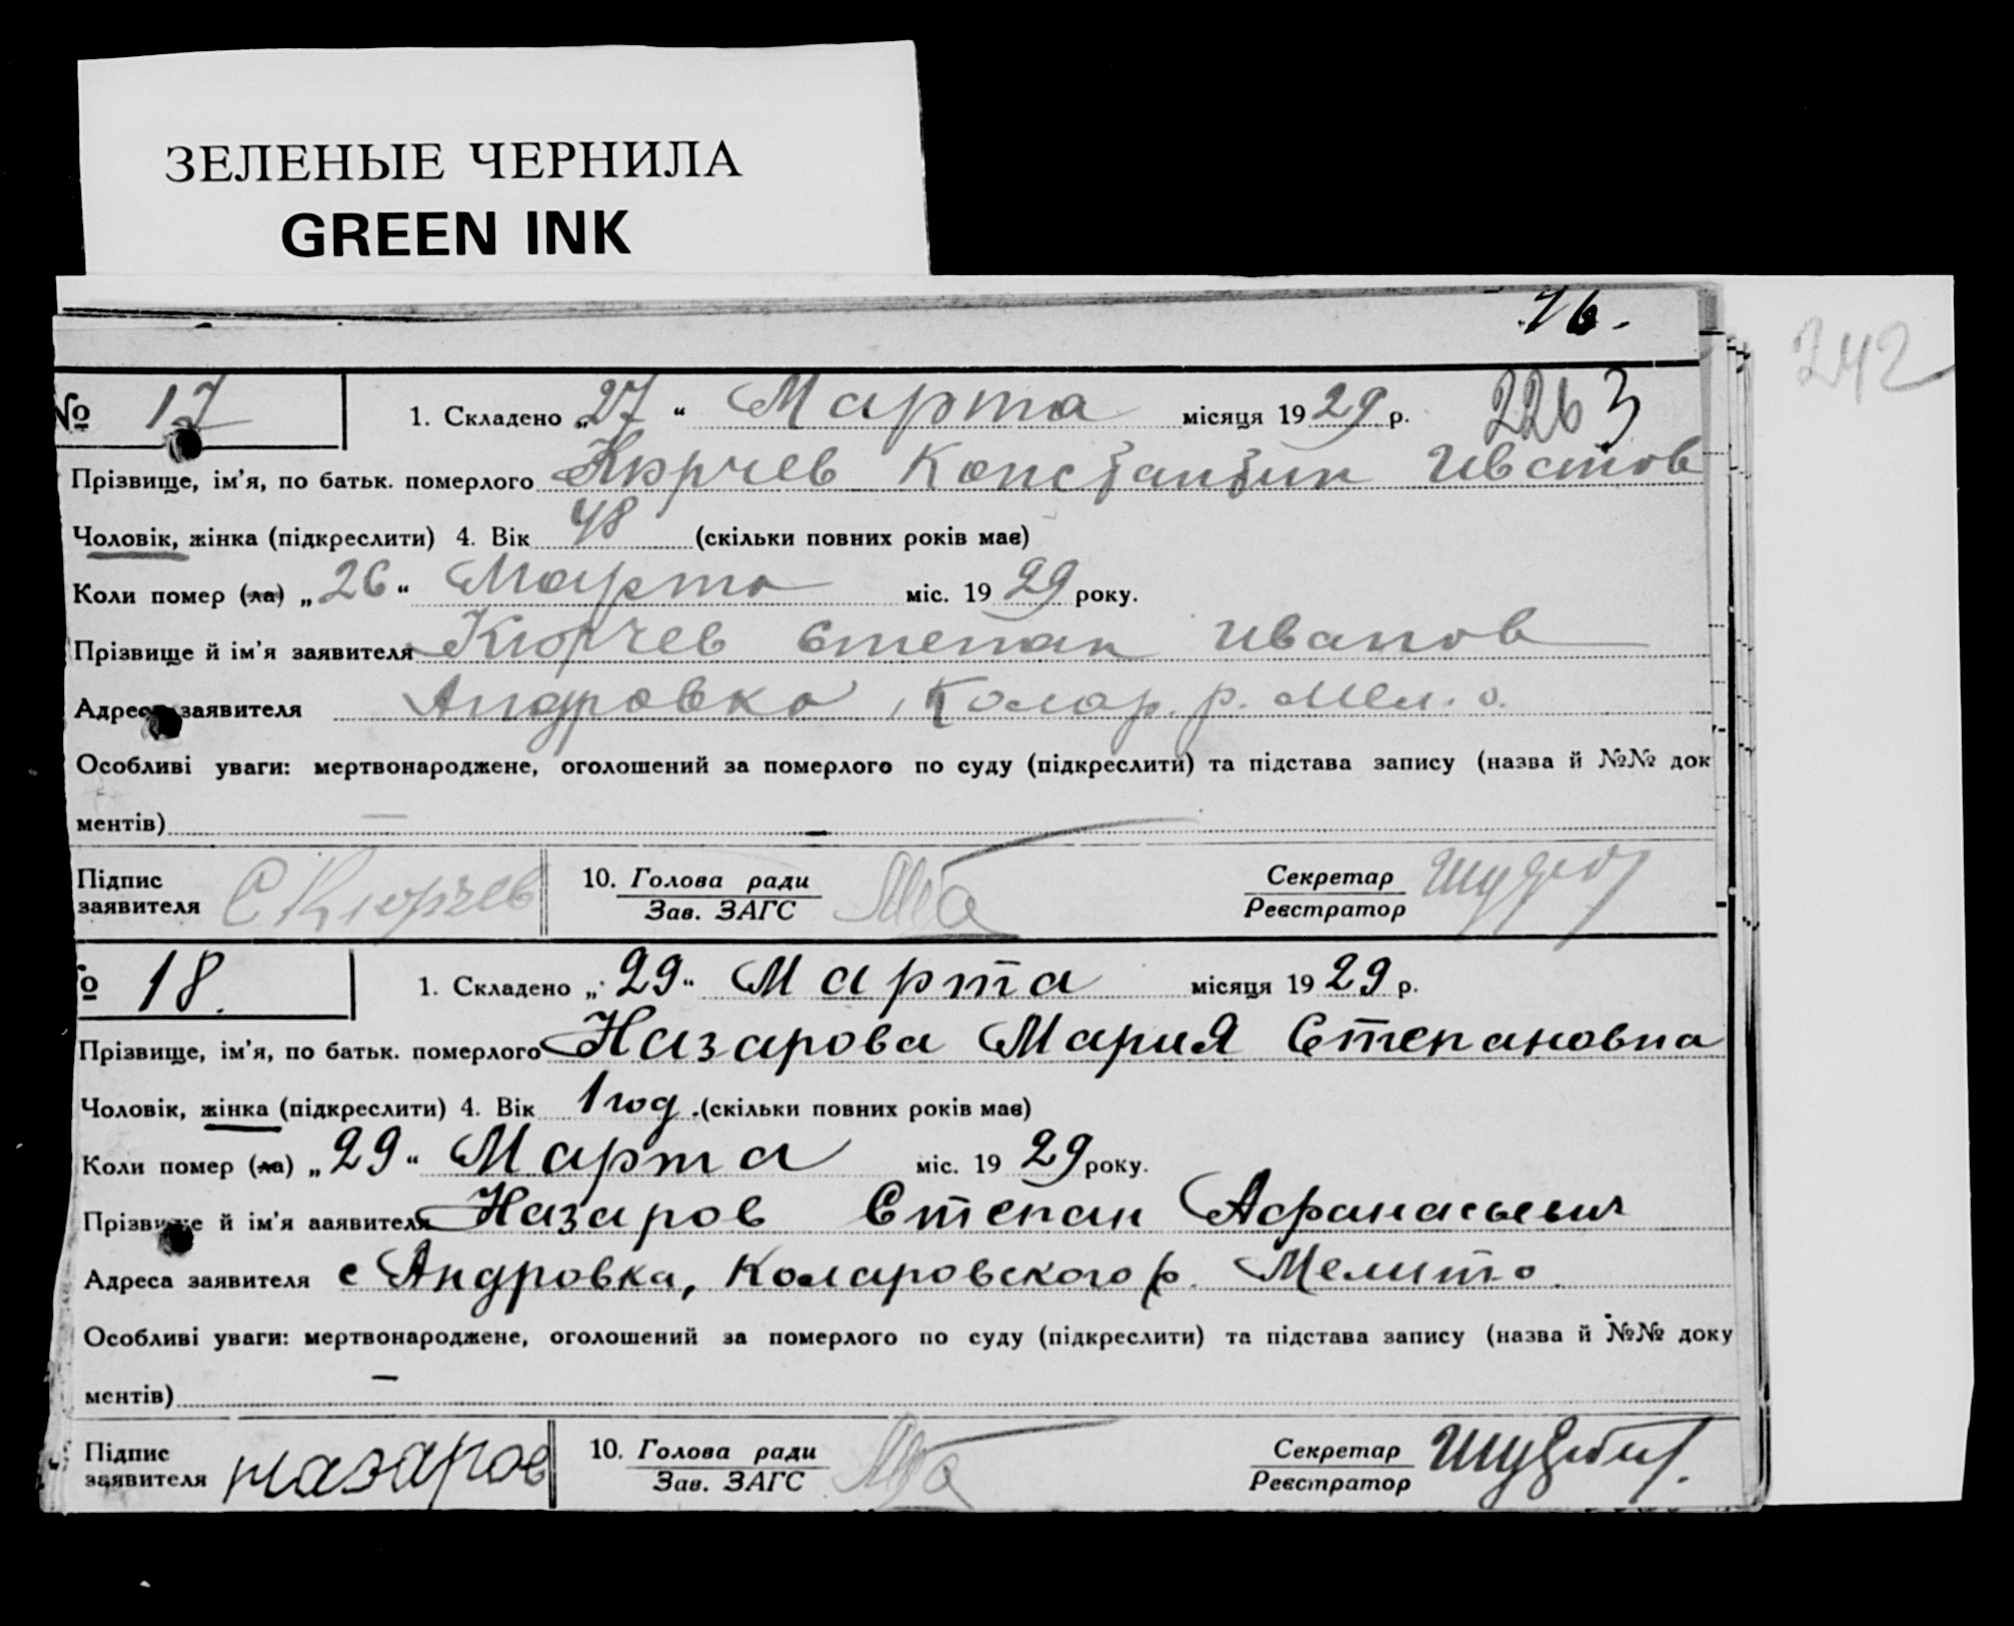 ЗЕЛЕНЫЕ ЧЕРНИЛА
GREEN INK
76.
242
№ 17 1. Складено „27“ Марта місяця 1929 р. 2263
Прізвище, ім'я, по батьк. померлого Кюрчев Константин Иванов
Чоловік, жінка (підкреслити) 4. Вік 48 (скільки повних років має)
Коли помер (ла) „26“ Марта міс. 1929 року.
Прізвище й ім'я заявителя Кюрчев Степан Иванов
Адреса заявителя Андровка, Колар. р. Мел. о.
Особливі уваги: мертвонароджене, оголошений за померлого по суду (підкреслити) та підстава запису (назва й №№ док
ментів) —
Підпис заявителя С Кюрчев 10. Голова ради Секретар
Зав. ЗАГС Реєстратор
№ 18. 1. Складено „29“ Марта місяця 1929 р.
Прізвище, ім'я, по батьк. померлого Назарова Мария Степановна
Чоловік, жінка (підкреслити) 4. Вік 1 год. (скільки повних років має)
Коли помер (ла) „29“ Марта міс. 1929 року.
Прізвище й ім'я ааявителя Назаров Степан Афанасьевич
Адреса заявителя с Андровка, Коларовского р. Мелит о.
Особливі уваги: мертвонароджене, оголошений за померлого по суду (підкреслити) та підстава запису (назва й №№ доку
ментів) —
Підпис заявителя назаров 10. Голова ради Секретар
Зав. ЗАГС Реєстратор